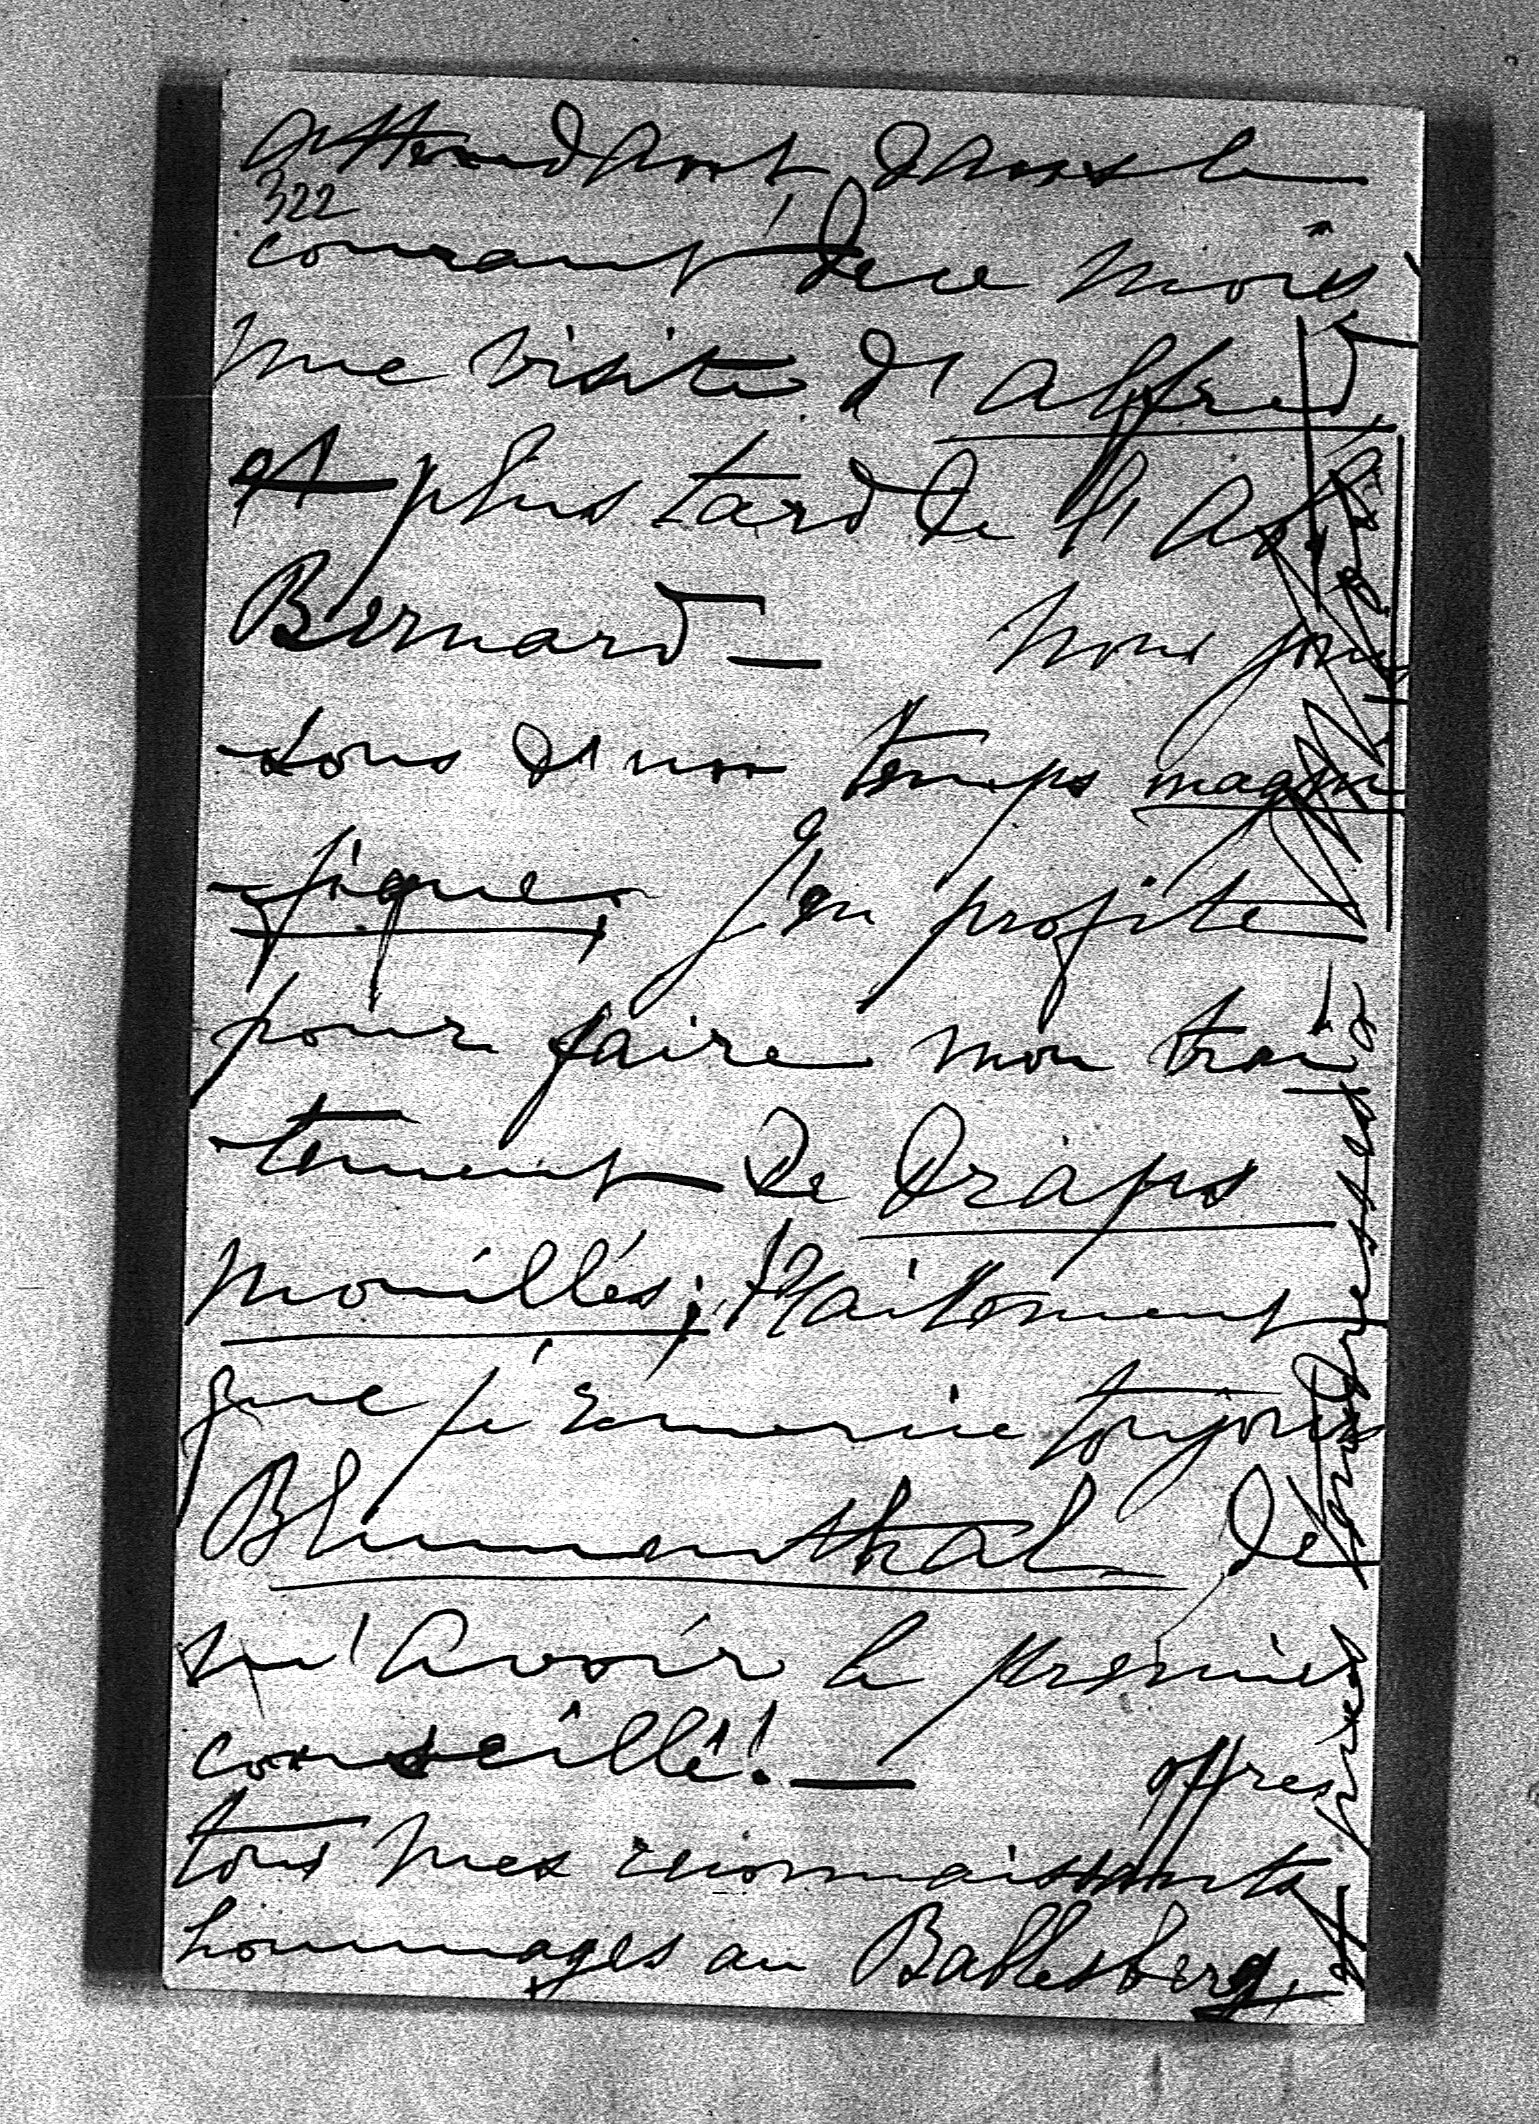 attendant dans le
322
courant de ce mois
une visite d'Alfred
et plus tard de l'
Bernard — Nous jouis
sons d'un temps magni
fique, j'en profite
pour faire mon trai
tement de draps
mouillés; traitement
que je remercie toujours
Blumenthal de
m'avoir le premier
conseillé! — offrez
tous mes reconnaissants
hommages au Babelsberg,